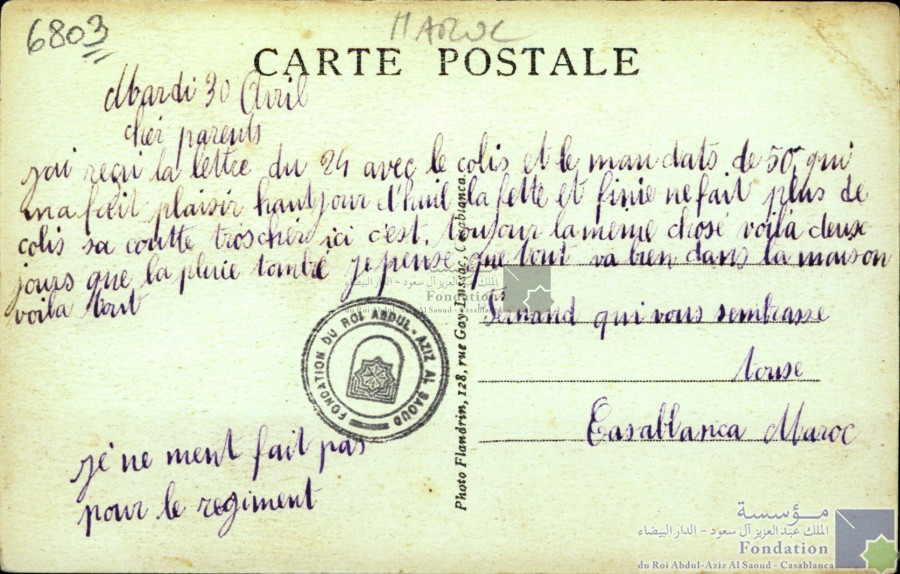 6803
MAROC
CARTE POSTALE
Mardi 30 Avril
cher parents
jai reçu la lettre du 24 avec le colis et le mandats de 50, qui
ma fait plaisir hautjour d'huil la fette et finie ne fait plus de
colis sa coutte troscher ici c'est toujour la même chose voilà deuse
jours que la pluie tombe je pense que tout va bien dans la maison
voilà tout
Fernand qui vous sembrasse
touse
Casablanca Maroc
je ne ment fait pas
pour le regiment
Photo Flandrin, 128, rue Gay-Lussac, Casablanca.
FONDATION DU ROI ABDUL-AZIZ AL SAOUD
الملك عبد العزيز آل سعود - الدار البيضاء
Fondation
du Roi Abdul-Aziz Al Saoud - Casablanca
مؤسسة
الملك عبد العزيز آل سعود - الدار البيضاء
Fondation
du Roi Abdul-Aziz Al Saoud - Casablanca